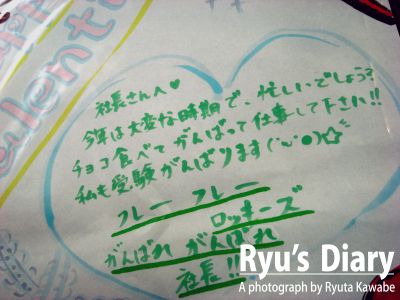 Valenti
社長さんへ♥
今年は大変な時期で、忙しいでしょう?
チョコ食べてがんばって仕事して下さい!!
私も受験がんばります(･ω･●)☆
フレー フレー
ロッキーズ
がんばれ がんばれ
社長!!
Ryu's Diary
A photograph by Ryuta Kawabe